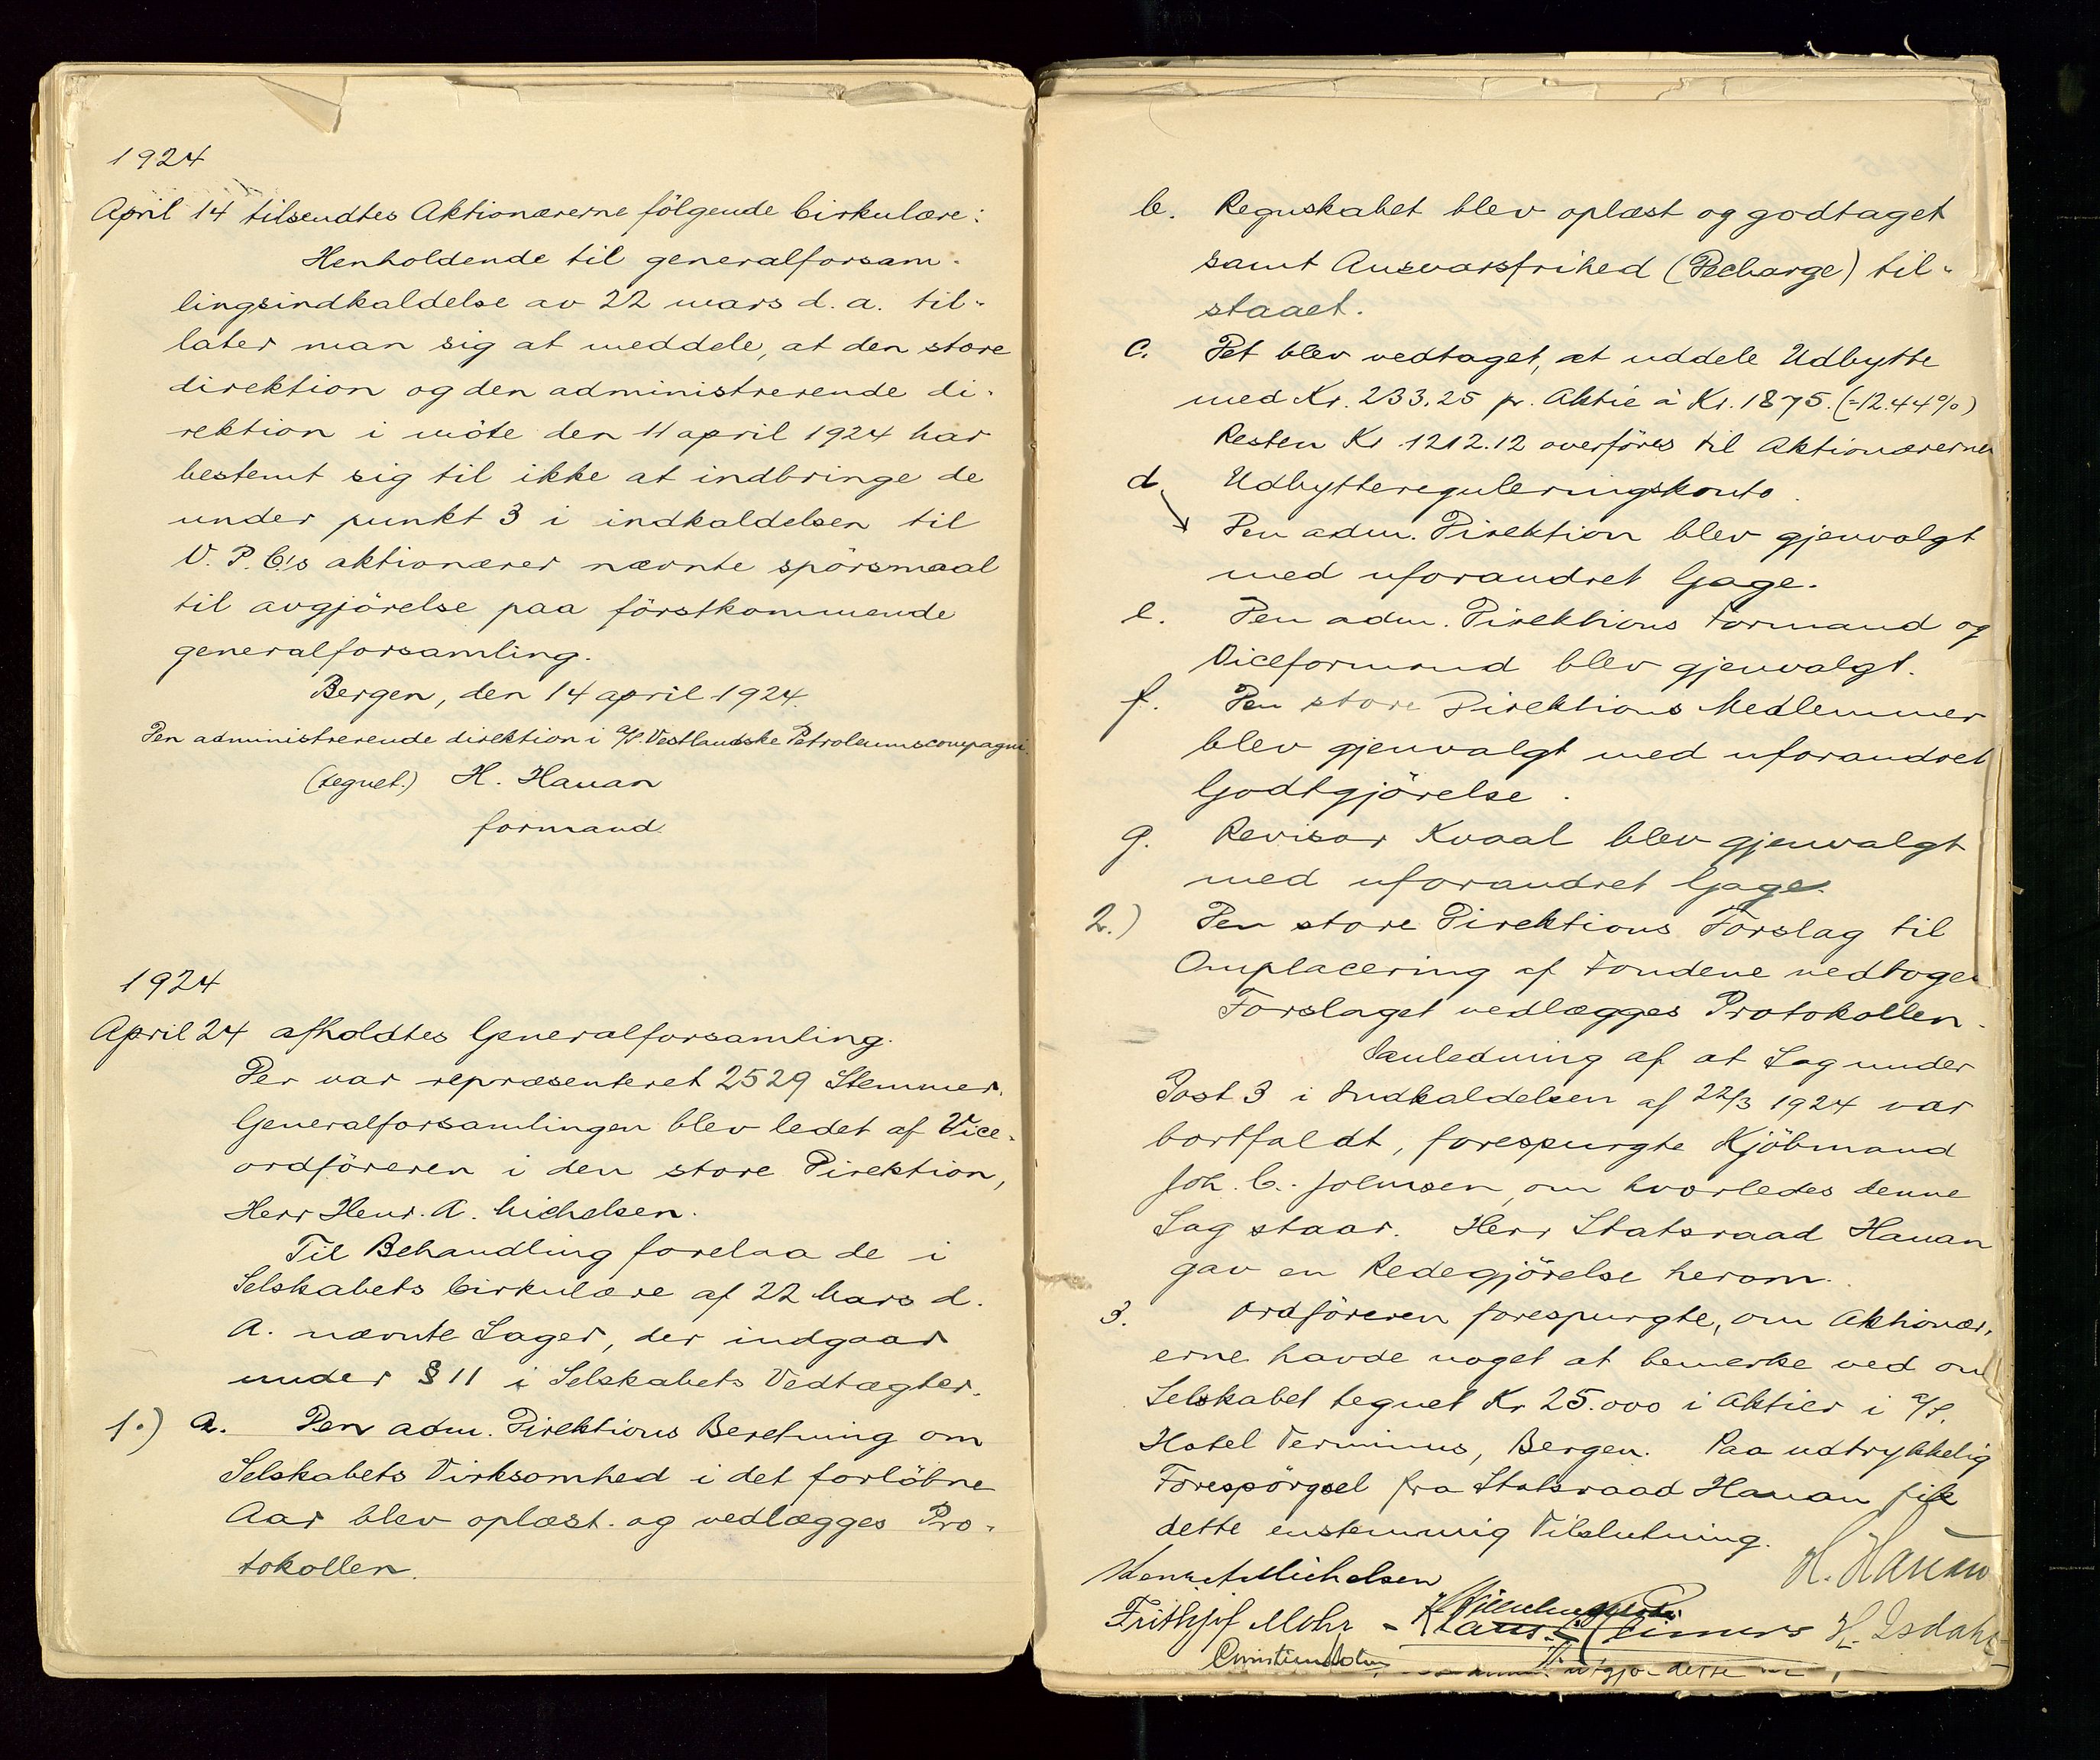 1924
April 14 tilsendtes Aktionærerne følgende Cirkulære:
Henholdende til generalforsam-
lingsindkaldelse av 22 mars d. a. til-
later man sig at meddele, at den store
direktion og den administrerende di-
rektion i möte den 11 april 1924 har
bestemt sig til ikke at indbringe de
under punkt 3 i indkaldelsen til
V. P. C's aktionærer nævnte spörsmaal
til avgjörelse paa förstkommende
generalforsamling.
Bergen, den 14 april 1924.
Den administrerende direktion i A/S. Vestlandske Petroleumscompagni.
(tegnet.) H. Hauan
formand.
1924
April 24 afholdtes Generalforsamling.
Der var repræsenteret 2529 Stemmer.
Generalforsamlingen blev ledet af Vice-
ordföreren i den store Direktion,
Herr Henr. A. Michelsen.
Til Behandling forelaa de i
Selskabets Cirkulære af 22 Mars d.
A. nævnte Sager, der indgaar
under § 11 i Selskabets Vedtægter.
1.) a. Den adm. Direktions Beretning om
Selskabets Virksomhed i det forlöbne
Aar blev oplæst og vedlægges Pro-
tokollen.
b. Regnskabet blev oplæst og godtaget
samt Ansvarsfrihed (Decharge) til-
staaet.
c. Det blev vedtaget, at uddele Udbytte
med Kr. 233.25 pr. Aktie à Kr. 1875. (=12.44%)
Resten Kr 1212.12 overföres til Aktionærernes
d. Udbyttereguleringskonto.
Den adm. Direktion blev gjenvalgt
med uforandret Gage.
e. Den adm. Direktions Formand og
Viceformand blev gjenvalgt.
f. Den store Direktions Medlemmer
blev gjenvalgt med uforandret
Godtgjörelse.
g. Revisor Kvaal blev gjenvalgt
med uforandret Gage.
2.) Den store Direktions Forslag til
Omplacering af Fondene vedtoges
Forslaget vedlægges Protokollen.
Ianledning af at Sag under
Post 3 i Indkaldelsen af 22/3 1924 var
bortfaldt, forespurgte Kjöbmand
Joh. C. Johnsen, om hvorledes denne
Sag staar. Herr Statsraad Hauan
gav en Redegjörelse herom.
3. Ordföreren forespurgte, om Aktionær-
erne havde noget at bemerke ved om
Selskabet tegnet Kr 25.000 i Aktier i A/S.
Hotel Terminus, Bergen. Paa udtrykkelig
Forespörgsel fra Statsraad Hauan fik
dette enstemmig Tilslutning.
Henr. A. Michelsen H. Hauan
Frithjof Mohr - Klaus Reimers H. Isdahl